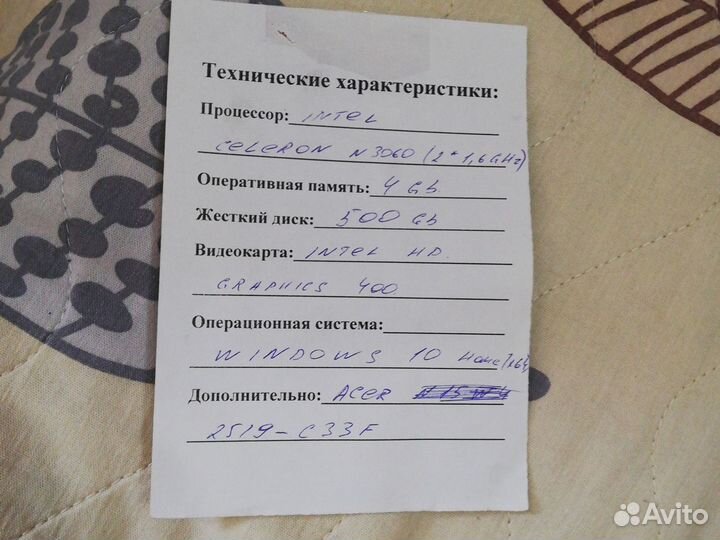 Технические характеристики:
Процессор: INTEL
CELERON N3060 (2*1,6GHz)
Оперативная память: 4 Gb
Жесткий диск: 500 Gb
Видеокарта: INTEL HD
GRAPHICS 400
Операционная система:
WINDOWS 10 Home
Дополнительно: ACER
2519-C33F
Avito